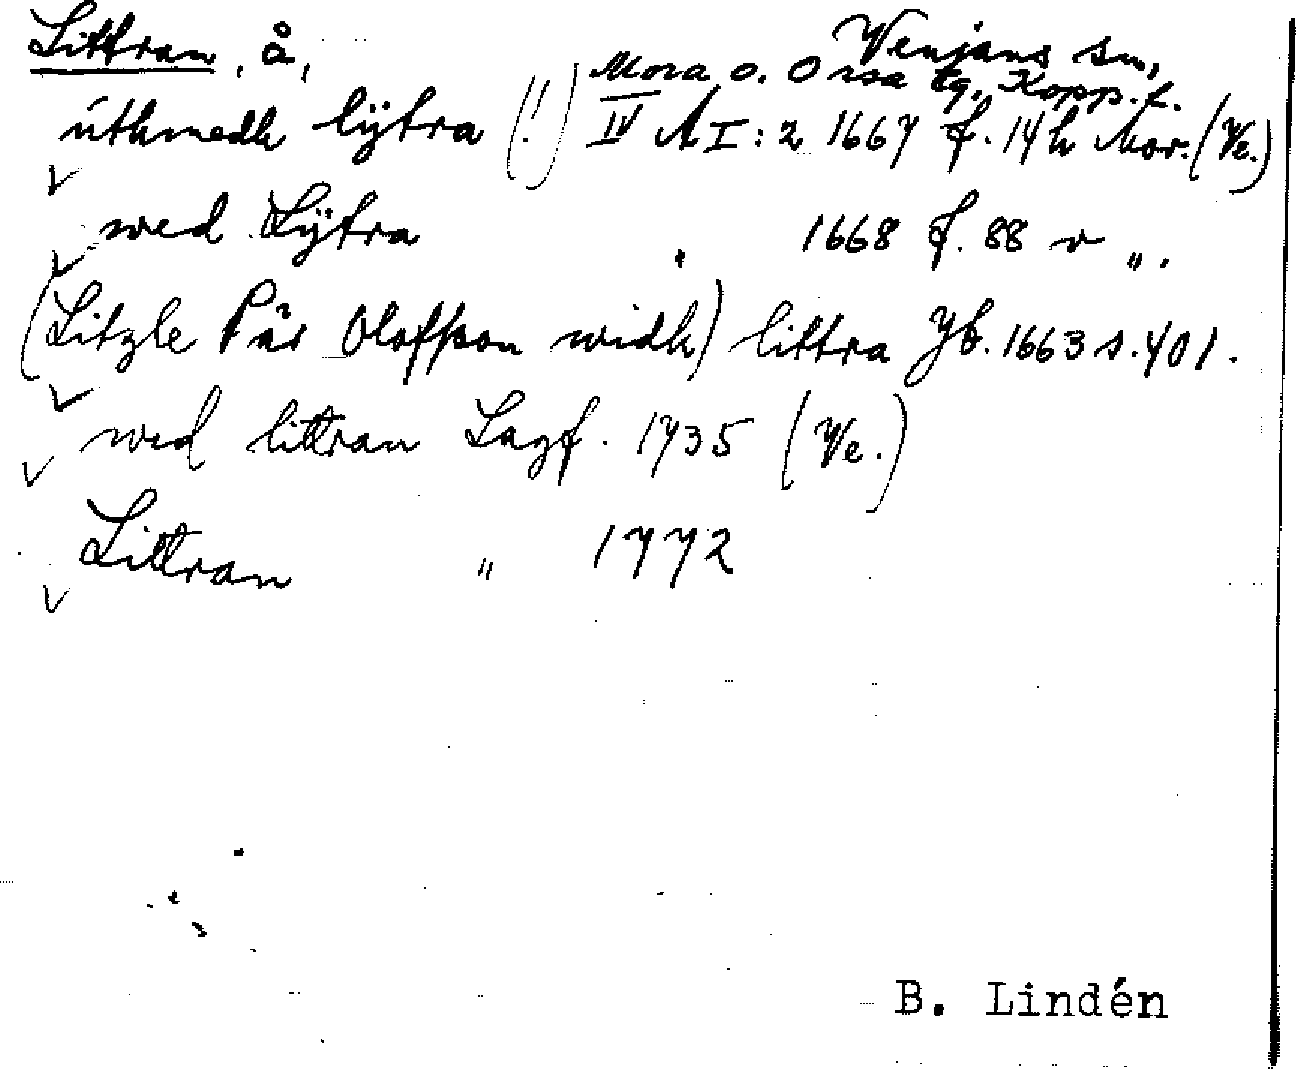 Littran, å, Venjans sn,
Mora o. Orsa tg, Kopp. l.
úthmedh lÿtra (!) IV A I: 2 1667 f. 14 h Mor. (Ve.)
wed Lÿtra " 1668 f. 88 v ".
(Litzle Pär Oloffson widh) littra Jb. 1663 s. 401.
wed littran Lagf. 1735 (Ve.)
Littran " 1772
B. Lindén